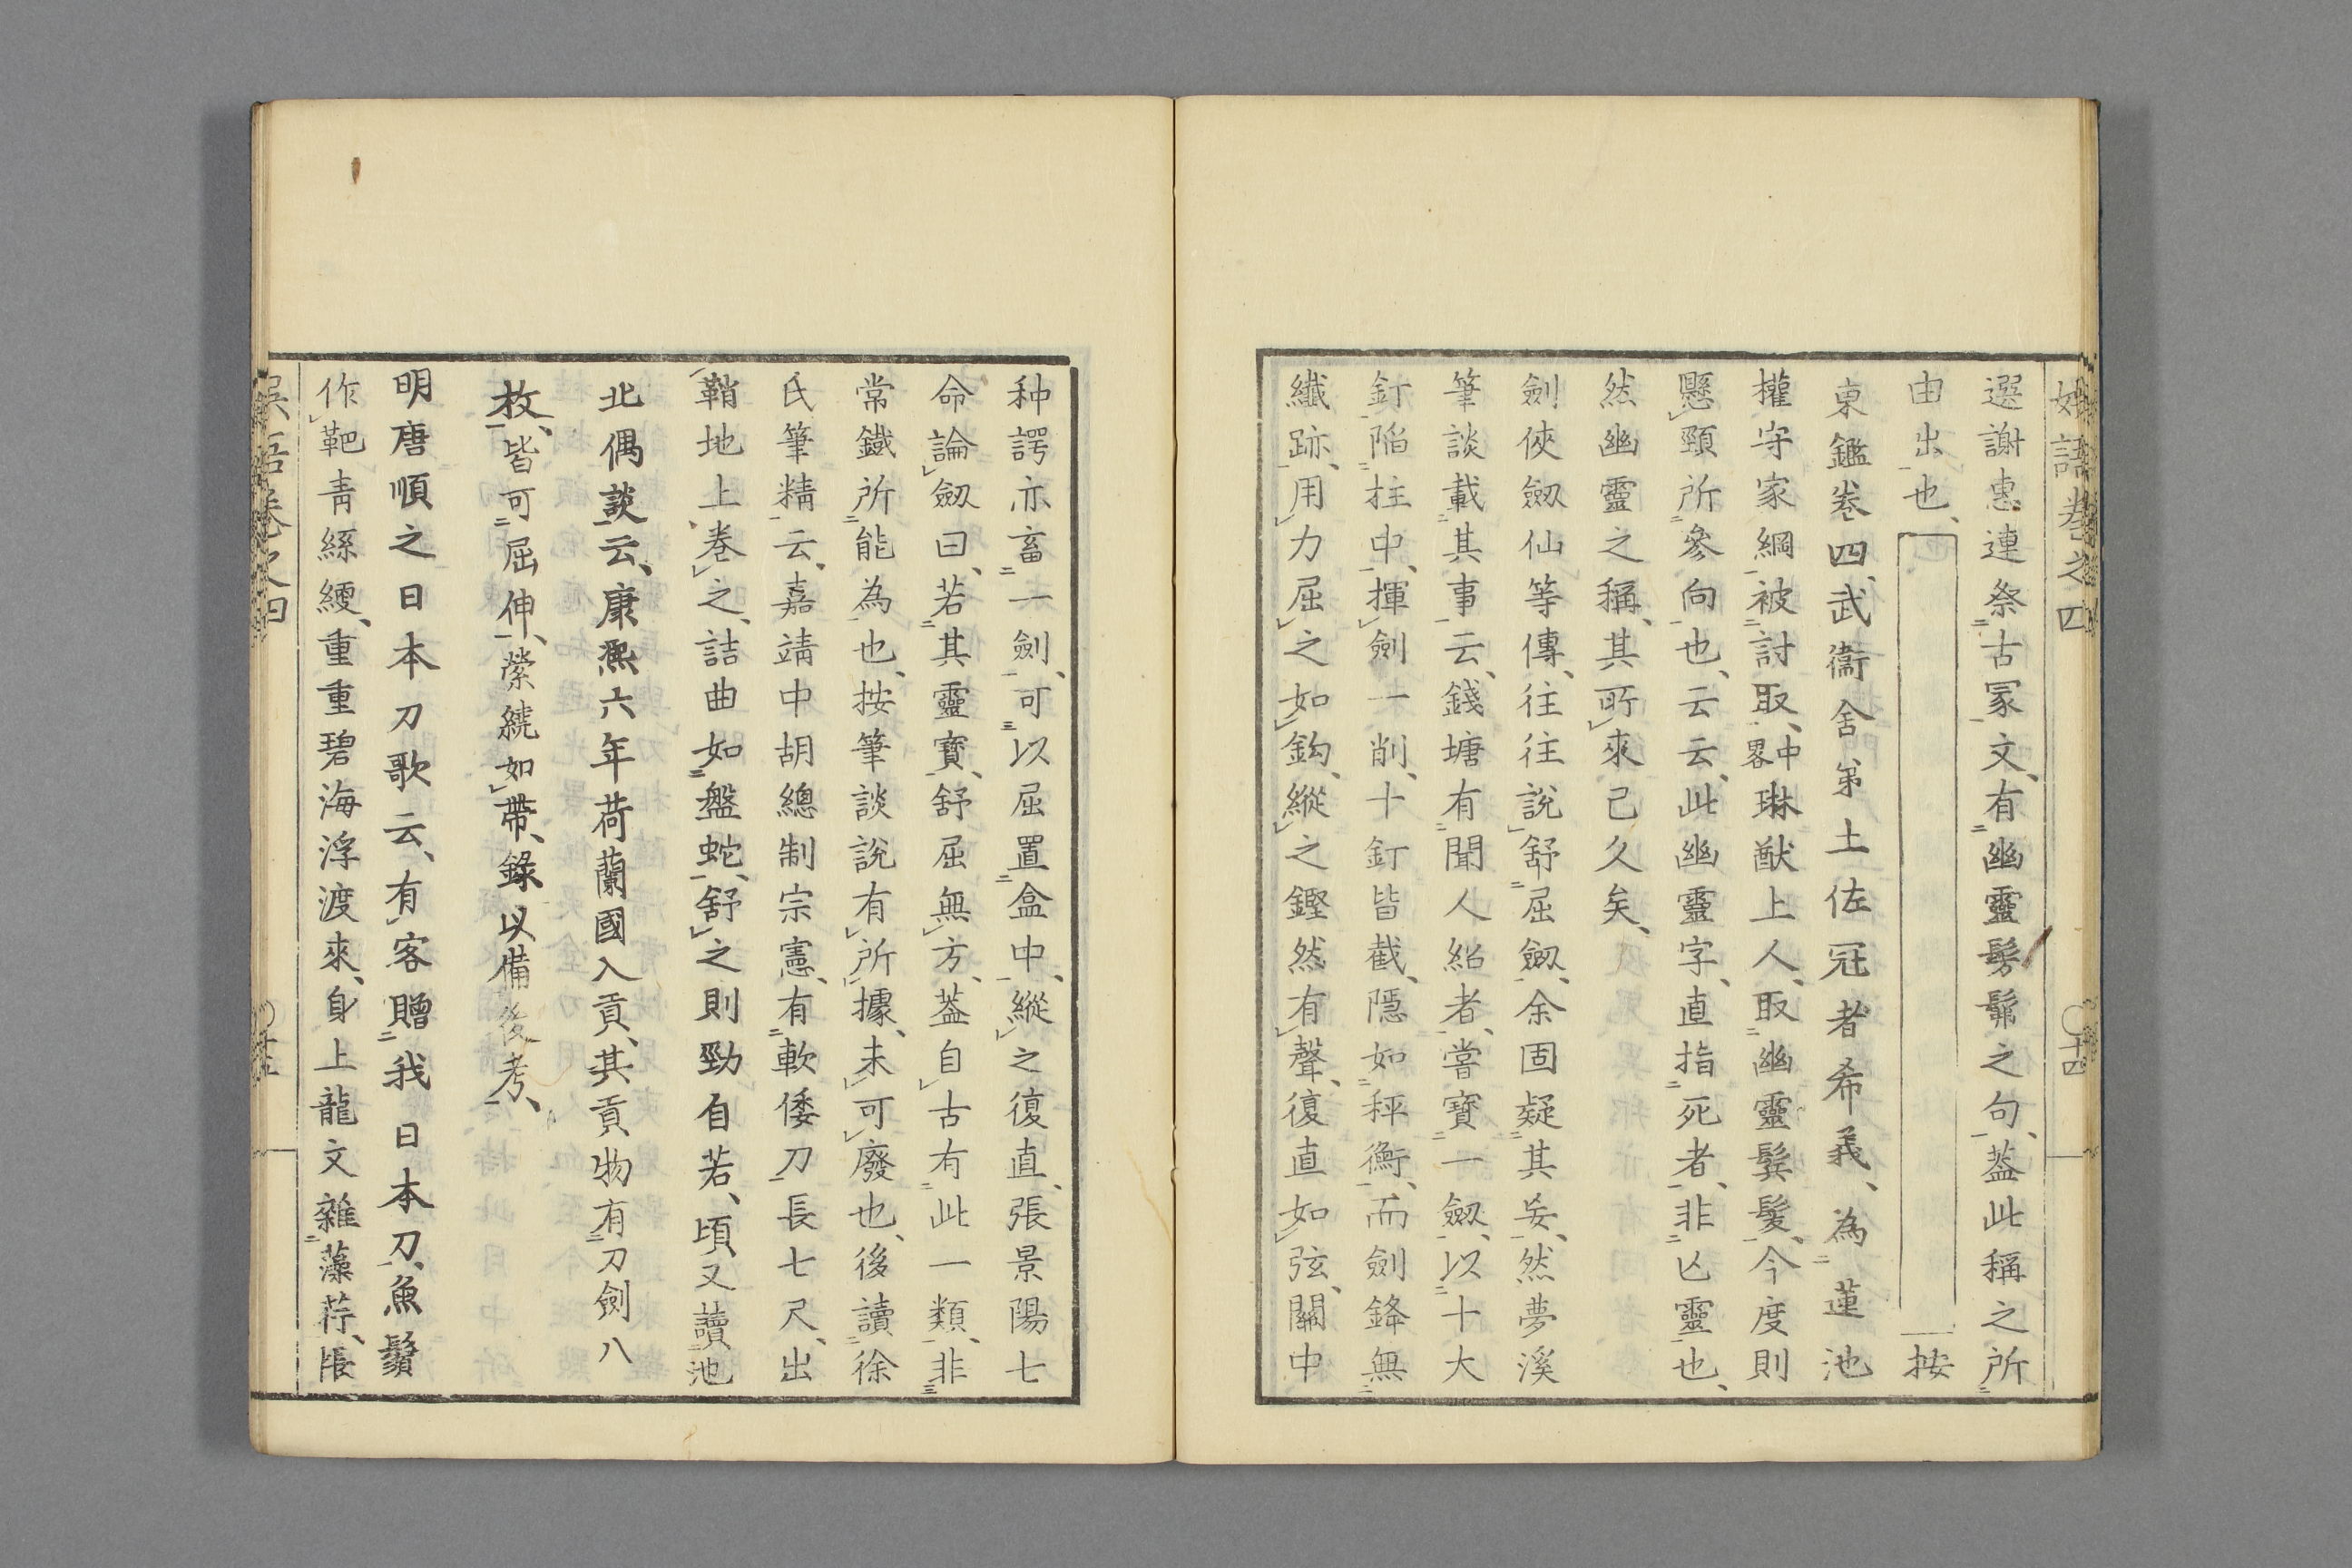 語卷之四
〇十四
選謝惠連祭古冢文、有幽靈髣髴之句、蓋此稱之所
由出也、
按
東鑑卷四、武衞舍弟土佐冠者希義、為蓮池
權守家綱被討取、中畧琳猷上人、取幽靈鬢髮、今度則
懸頸所參向也、云云、此幽靈字、直指死者、非亡靈也、
然幽靈之稱、其所來已久矣、
劍俠劔仙等傳、往往說舒屈劔、余固疑其妄、然夢溪
筆談載其事云、錢塘有聞人紹者、嘗寶一劔、以十大
釘陷柱中、揮劍一削、十釘皆截、隱如秤衡、而劍鋒無
纖跡、用力屈之如鈎、縱之鏗然有聲、復直如弦、關中
种諤亦畜一劍、可以屈置盒中、縱之復直、張景陽七
命論劔曰、若其靈寶、舒屈無方、蓋自古有此一類、非
常鐵所能為也、按筆談說有所據、未可廢也、後讀徐
氏筆精云、嘉靖中胡總制宗憲、有軟倭刀長七尺、出
鞘地上卷之、詰曲如盤蛇、舒之則勁自若、頃又讀池
北偶談云、康熙六年荷蘭國入貢、其貢物有刀劍八
枚、皆可屈伸、縈繞如帶、錄以備後考、
明唐順之日本刀歌云、有客贈我日本刀、魚鬚
作靶青絲綆、重重碧海浮渡來、身上龍文雜藻荇、悵
卷之四